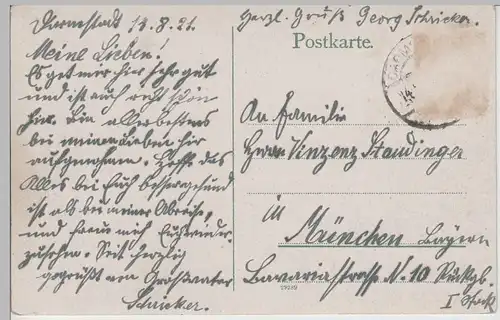 Darmstadt 13.8.21.
Meine Lieben!
Es get mir hir sehr gut
und ist auch recht schön
hir. Bin aller bestens
bei meinen Lieben hir
aufgenohmen. Hoffe das
Alles bei Euch besser gesund
ist als bei meiner Abreise,
und freue mich Euch wieder
zusehen. Seit herzlig
gegrüßt von Großvater
Schricker.
Herzl. Gruß Georg Schricker.
Postkarte.
An Familie
Herrn Vinzenz Staudinger
in
München Bayern
Bavariastrasse N. 10 Rückgb.
I Stock